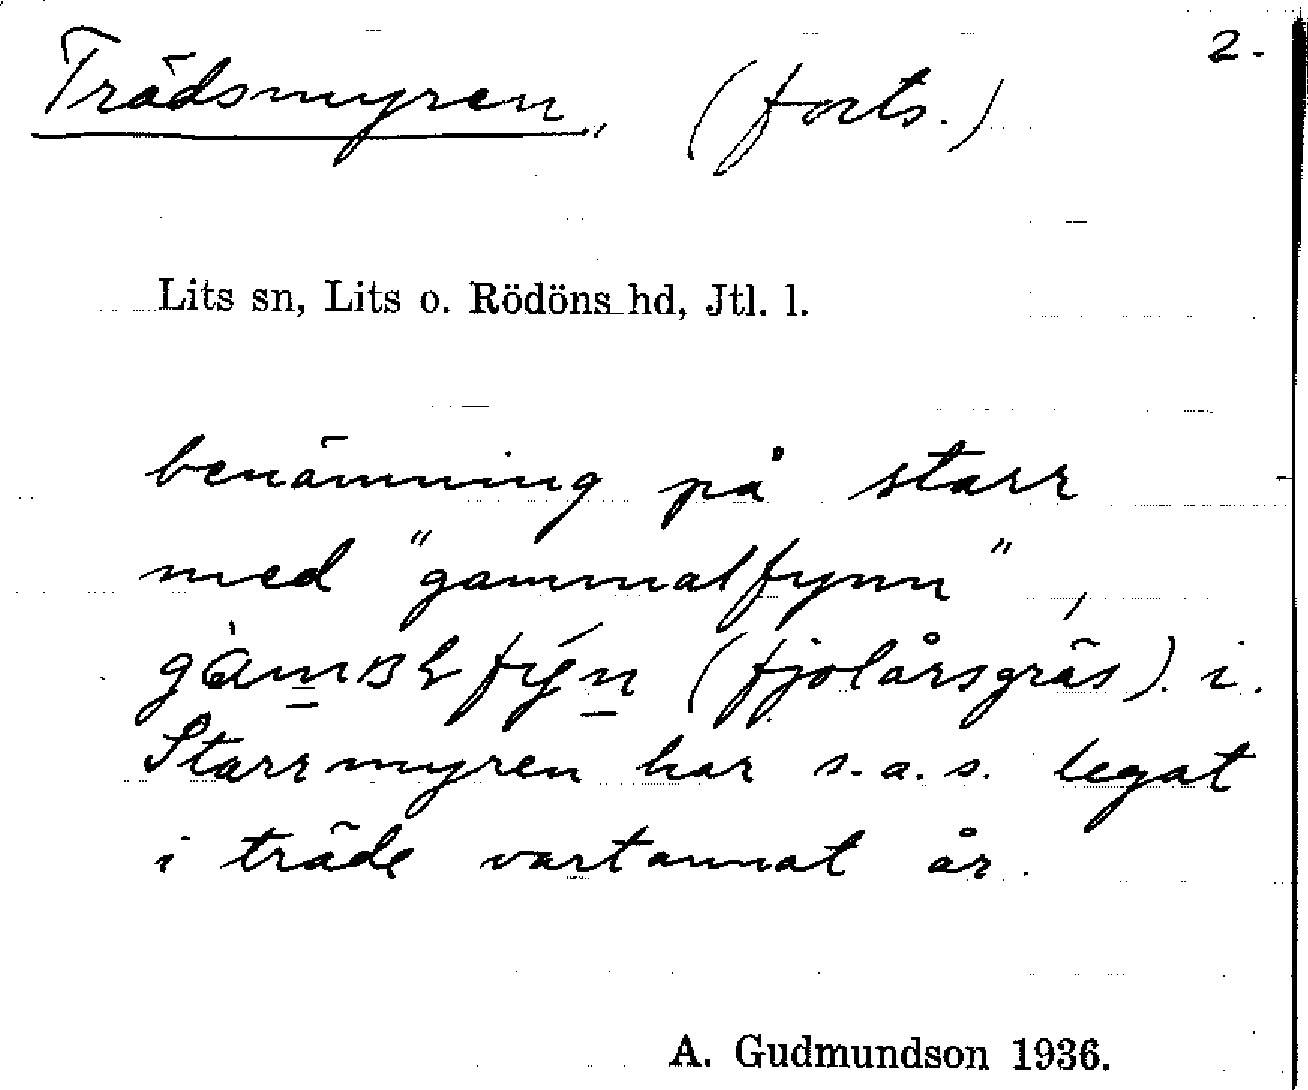 2.
Trädsmyren, (forts.)
Lits sn, Lits o. Rödöns hd, Jtl. l.
benämning på starr
med "gammalfynn",
(fjolårsgräs). i.
Starrmyren har s.a.s. legat
i träde vartannat år.
A. Gudmundson 1936.